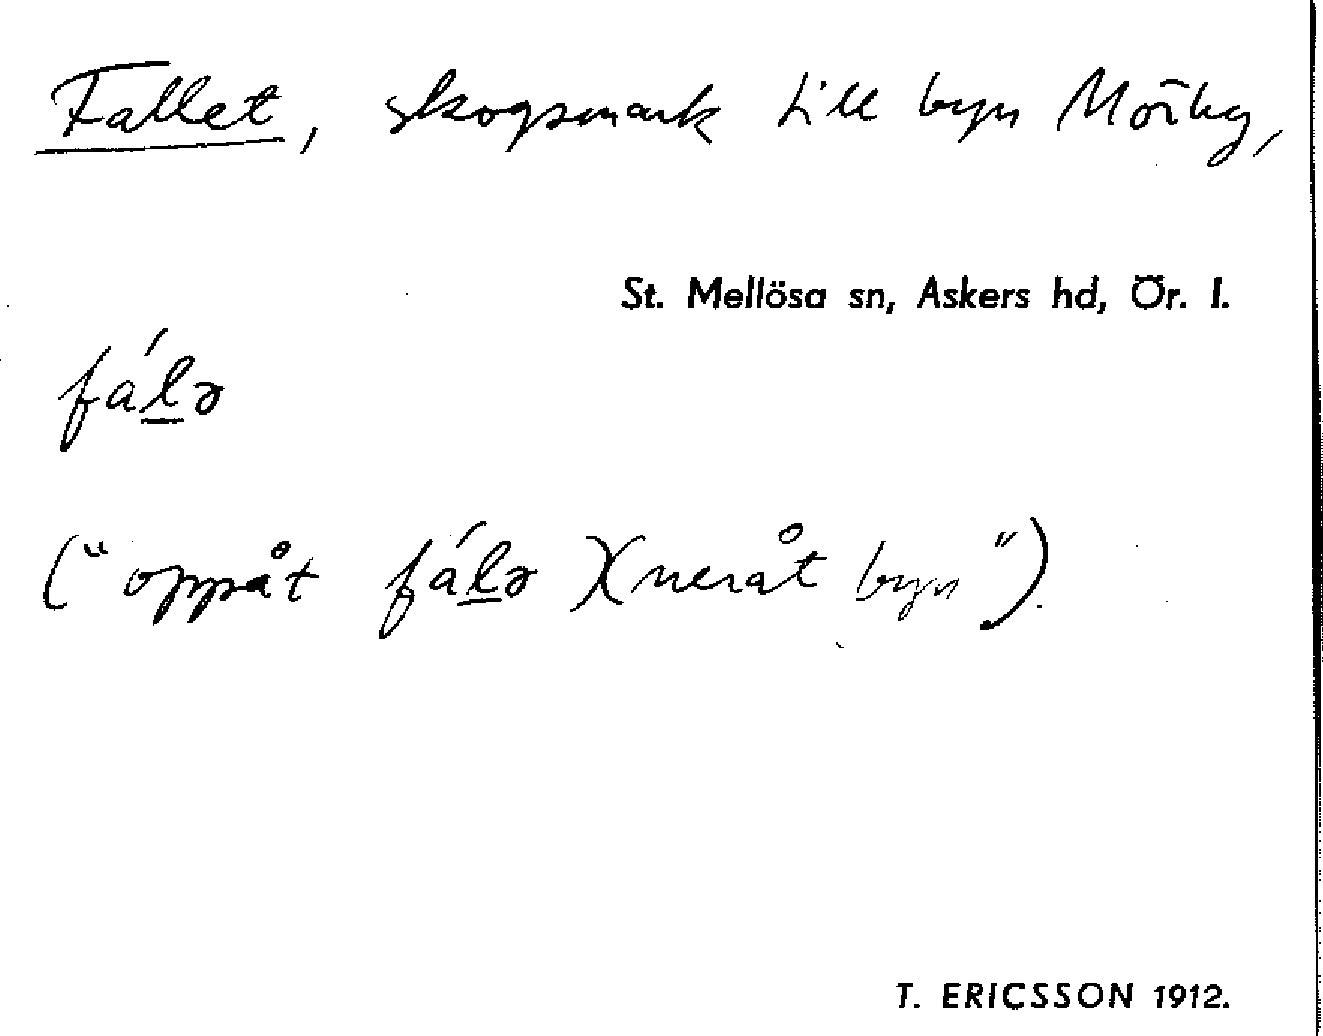 Fallet, skogsmark till byn Mörby,
St. Mellösa sn, Askers hd, Ör. l.
fál̲ə
("oppåt fál̲ə )( neråt byn").
T. ERICSSON 1912.